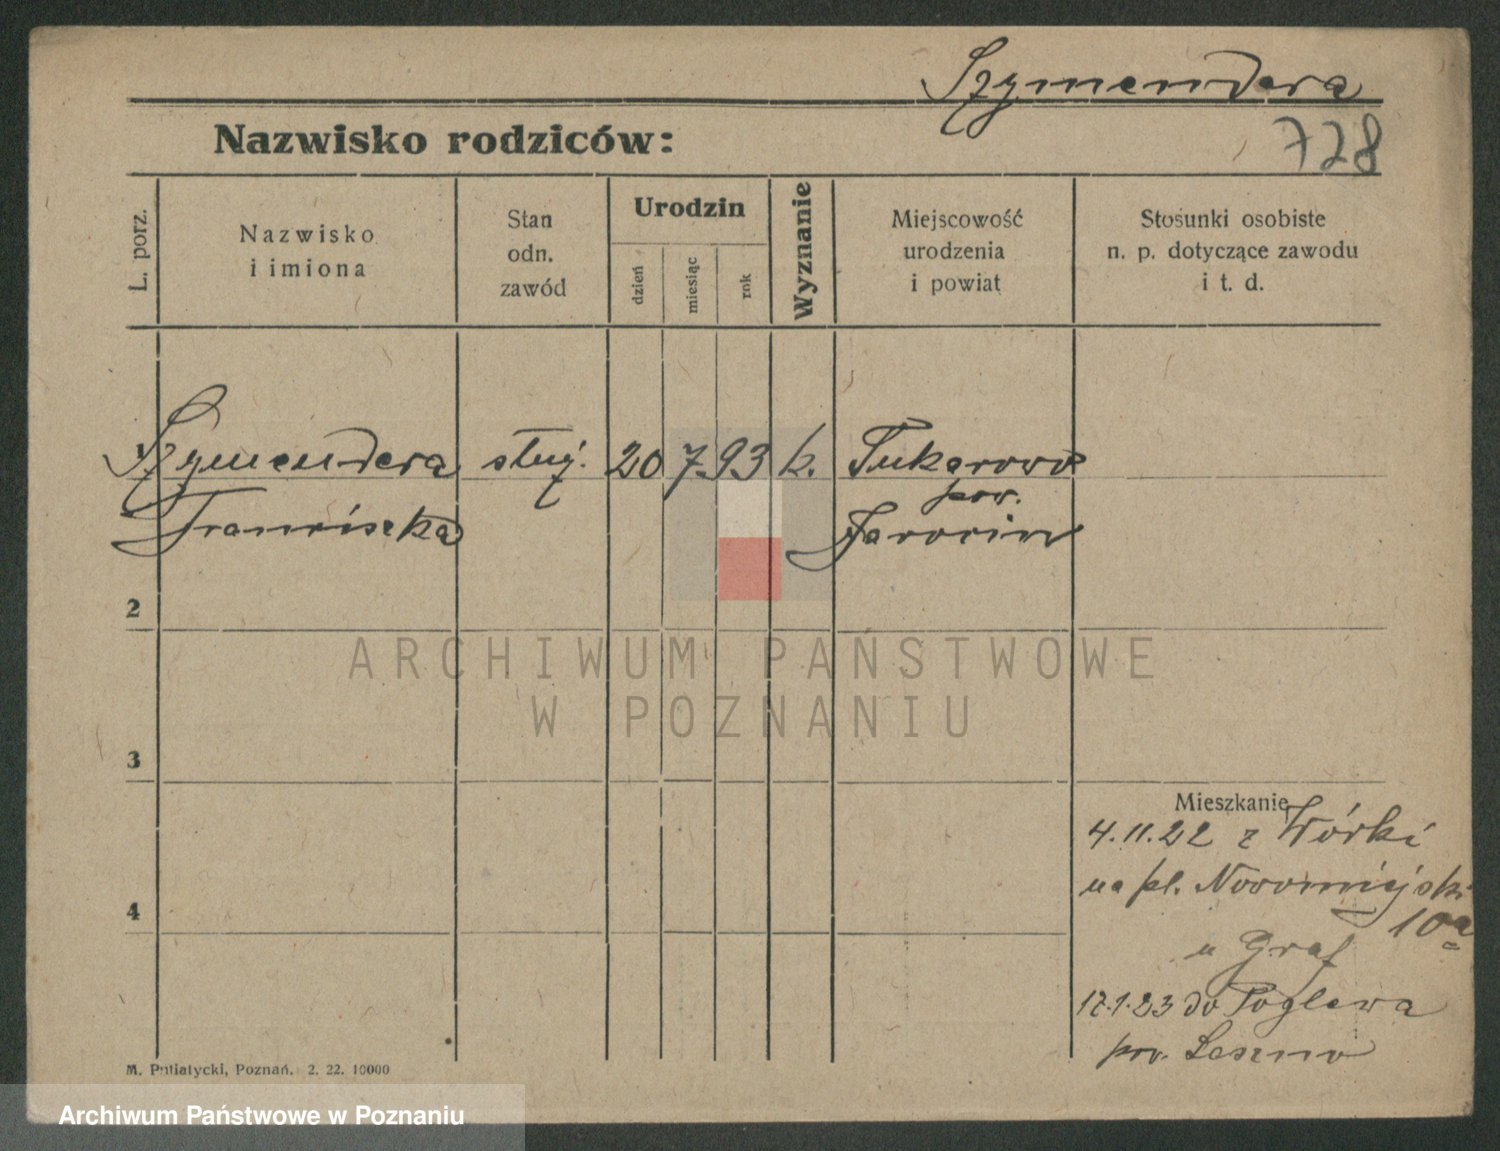 Szymendera
Nazwisko rodziców:
728
L. porz.
Nazwisko
i imiona
Stan
odn.
zawód
Urodzin
dzień
miesiąc
rok
Wyznanie
Miejscowość
urodzenia
i powiat
Stosunki osobiste
n. p. dotyczące zawodu
i t. d.
Szymendera służ. 20 7 93 k.
pow.
Franciszka Jarocin
2
ARCHIWUM PAŃSTWOWE
W POZNANIU
3
Mieszkanie
4.11.22 z Wórki
na pl. Nowomiejski
4
10a
u Graf
17.1.23 do
pow. Leszno
M. Putiatycki, Poznań. 2. 22. 10000
Archiwum Państwowe w Poznaniu